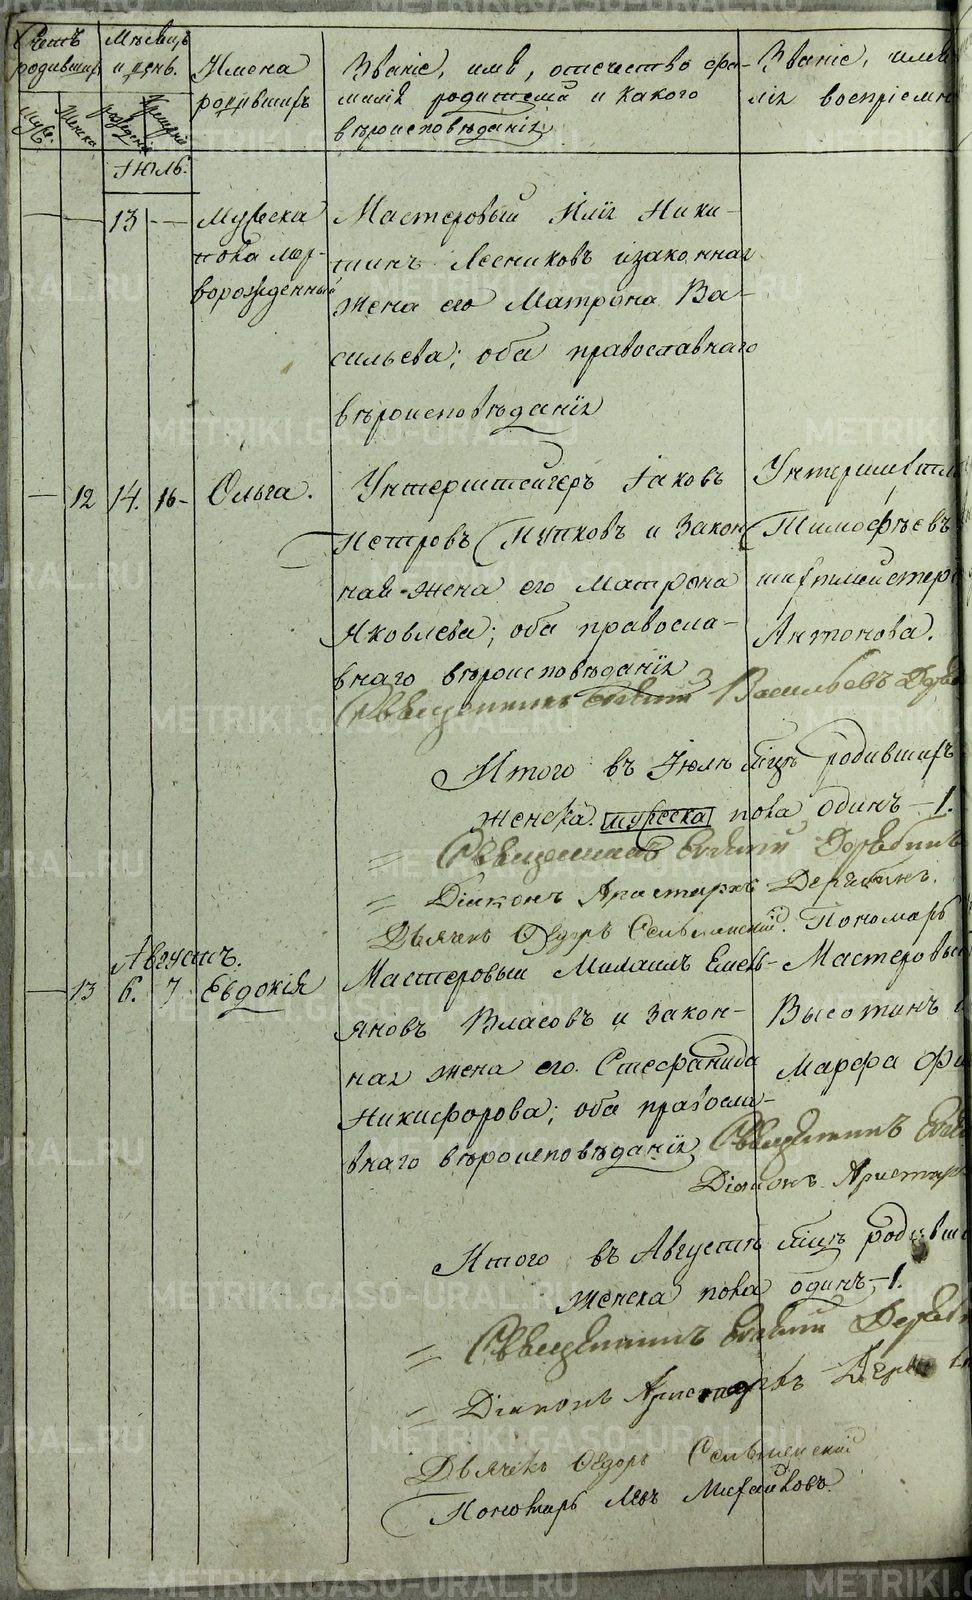 Счетъ родившихъ
Муж.
Женска
Мѣсяцъ и день.
рожденія
Крещенія
Имена родившихъ
Званіе, имя, отечество фа-
милія родителей и какого
вѣроисповѣданія
Званіе, имя
лія воспріемн
Іюль.
13
Мужеска
пола мер-
ворожденный
Мастеровый Илія Ники-
тинъ Лесниковъ изаконная
жена его Матрона Ва-
сильева; оба православнаго
вѣроисповѣданія
12 14. 16 Ольга.
Унтершteйгеръ Іаковъ
Петровъ Пупковъ и закон
ная жена его Матрона
Яковлева; оба правосла-
внаго вѣроисповѣданія
Тимофѣевъ
шихтмейстер
Антонова.
Священникъ Васильевъ
Итого въ Іюлѣ мцѣ родившихъ
женска. мужеска пола одинъ—1.
Священникъ
Діаконъ Аристархъ Дерябинъ.
Дьячекъ Ѳедоръ Сельменскій. Пономарь
Августъ.
13 6. 7 Евдокія
Мастеровый Михаилъ Емель-
яновъ Власовъ и закон-
ная жена его Стефанида
Никифорова; оба правосла-
внаго вѣроисповѣданія
Мастеровый
Высотинъ
Марфа
Священникъ
Діаконъ Аристар
Итого въ Августѣ мцѣ родивши
женска пола одинъ—1.
Священникъ
Діаконъ Аристархъ
Дьячекъ Ѳедоръ Сельменскій
Пономарь Левъ Михайловъ.
METRIKI.GASO-URAL.RU